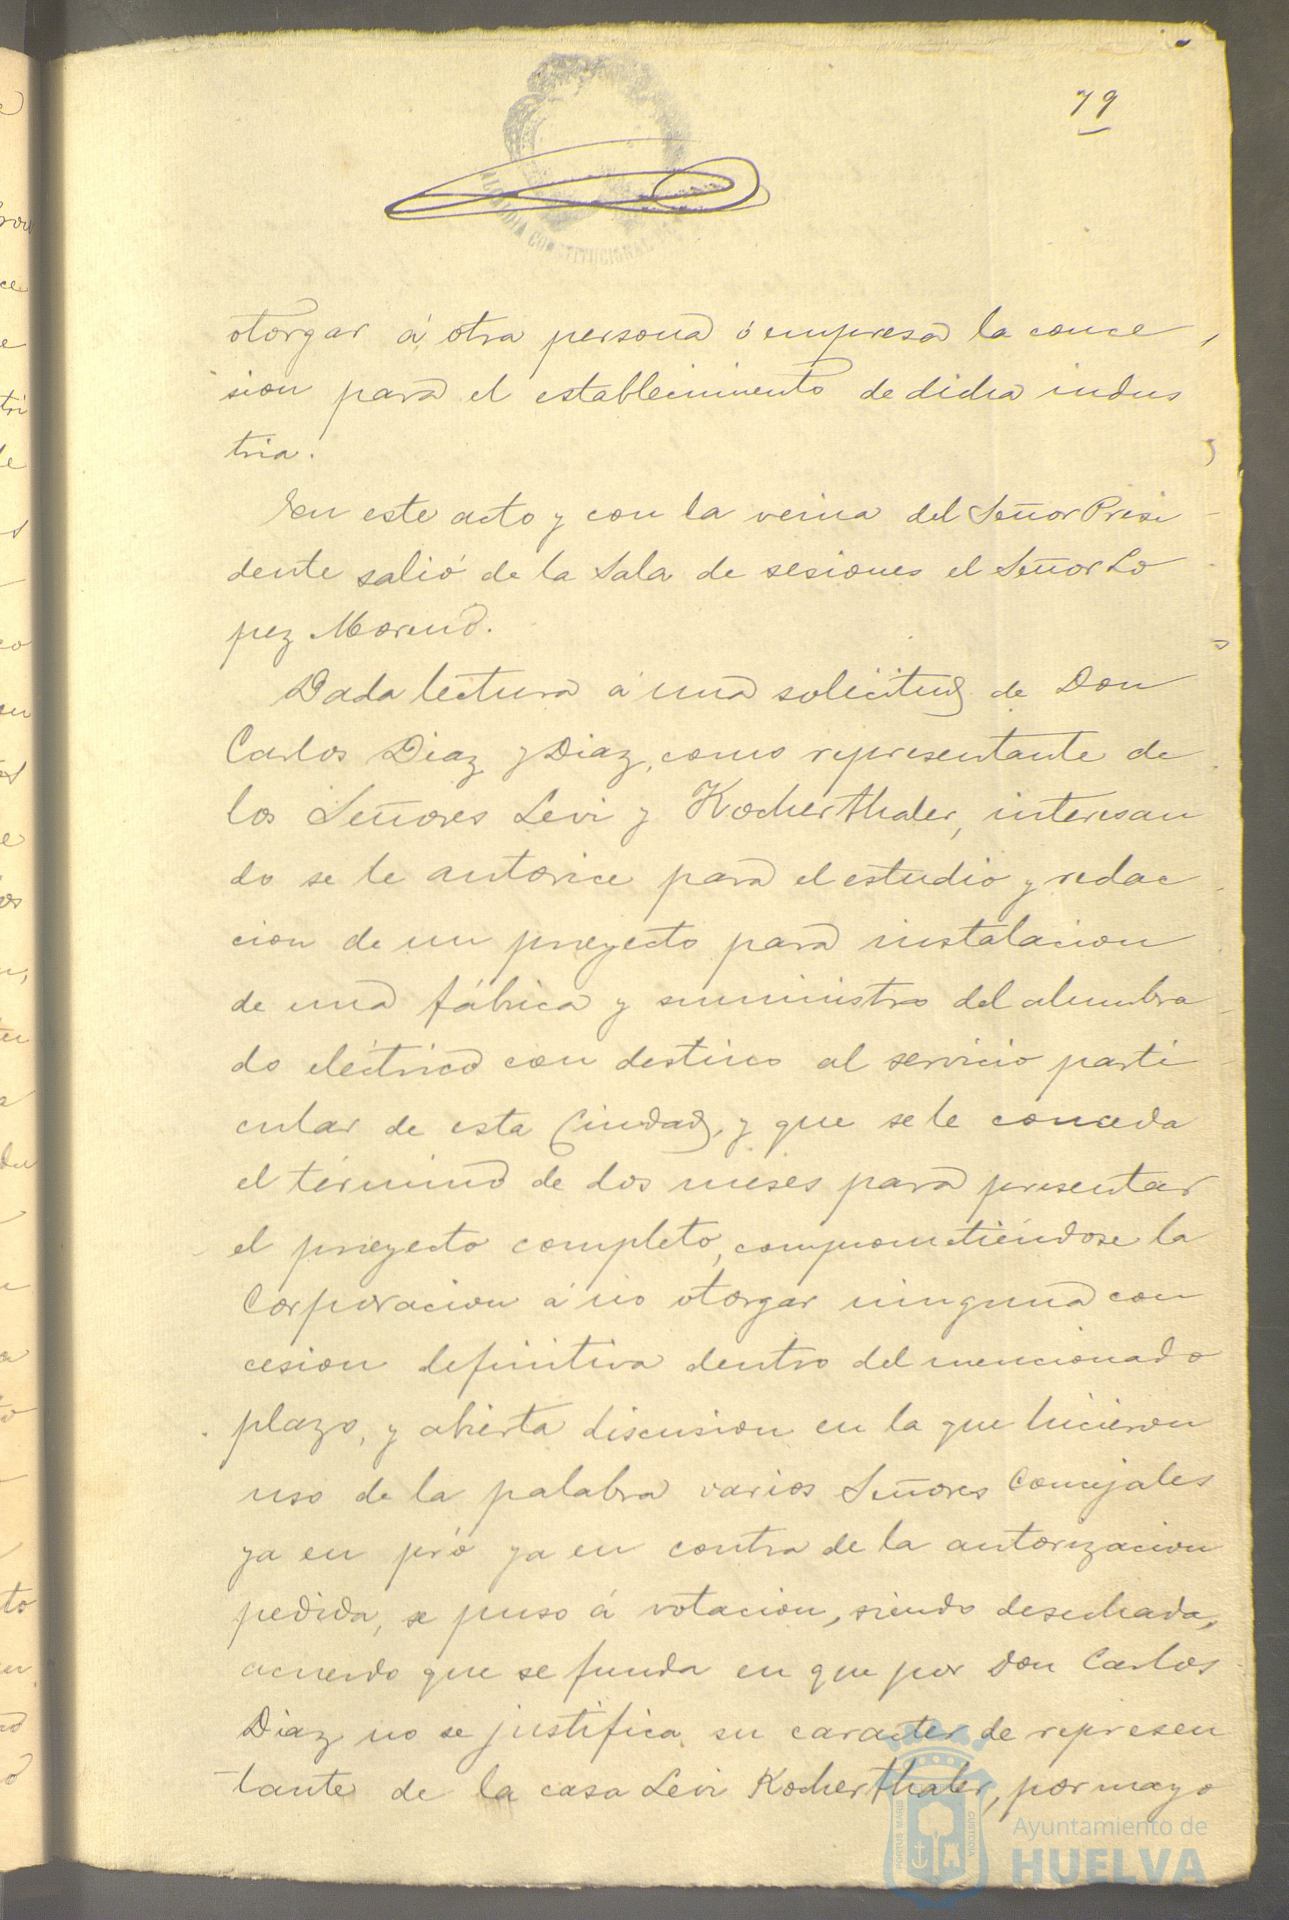 79
ALCALDIA CONSTITUCIONAL
otorgar á otra persona ó empresa la conce
sion para el establecimiento de dicha indus
tria.
En este acto y con la venia del Señor Presi
dente salió de la Sala de sesiones el Señor Lo
pez Moreno.
Dada lectura á una solicitud de Don
Carlos Diaz y Diaz, como representante de
los Señores Levi y Kocherthaler, interesan
do se le autorice para el estudio y redac
cion de un proyecto para instalacion
de una fábrica y suministro del alumbra
do eléctrico con destino al servicio parti
cular de esta Ciudad, y que se le conceda
el término de dos meses para presentar
el proyecto completo, comprometiéndose la
Corporacion á no otorgar ninguna con
cesion definitiva dentro del mencionado
plazo, y abierta discusion en la que hicieron
uso de la palabra varios Señores Concejales
ya en pró ya en contra de la autorizacion
pedida, se puso á votacion, siendo desechada,
acuerdo que se funda en que por Don Carlos
Diaz no se justifica su caracter de represen
tante de la casa Levi Kocherthaler, por mayo
PORTUS MARIS
CUSTODIA
Ayuntamiento de
HUELVA